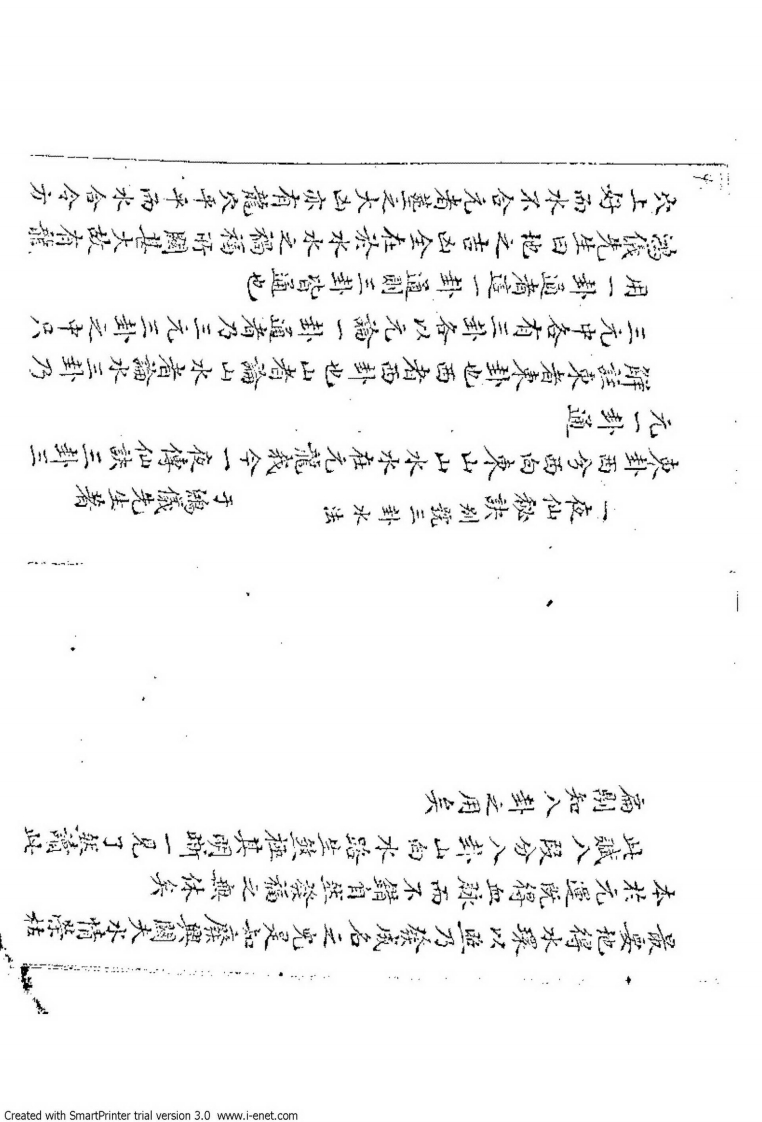 最要地得水環以照乃發威名之見是知廢興關夫水情榮枯
本於元運既得血脉而不錯自然發福之無休矣
此賦八段分八卦山向水路生發極其明晰一見了然讀此
扁則知八卦之用矣
一夜仙秘訣別號三卦水法 于鴻儀先生著
東卦西兮西向東山山水水在元龍義兮一夜傳仙訣三卦三
元一卦通
解註東者東卦也西者西卦也山者論山水者論水三卦乃
三元中各有三卦各以元論一卦通者乃三元三卦之中只
用一卦通者這一卦通則三卦皆通也
鴻儀先生曰地之吉凶全在於水水之禍福所關甚大故有龍
穴上好而水不合元者葬之大凶亦有龍穴平平而水合令方
Created with SmartPrinter trial version 3.0 www.i-enet.com